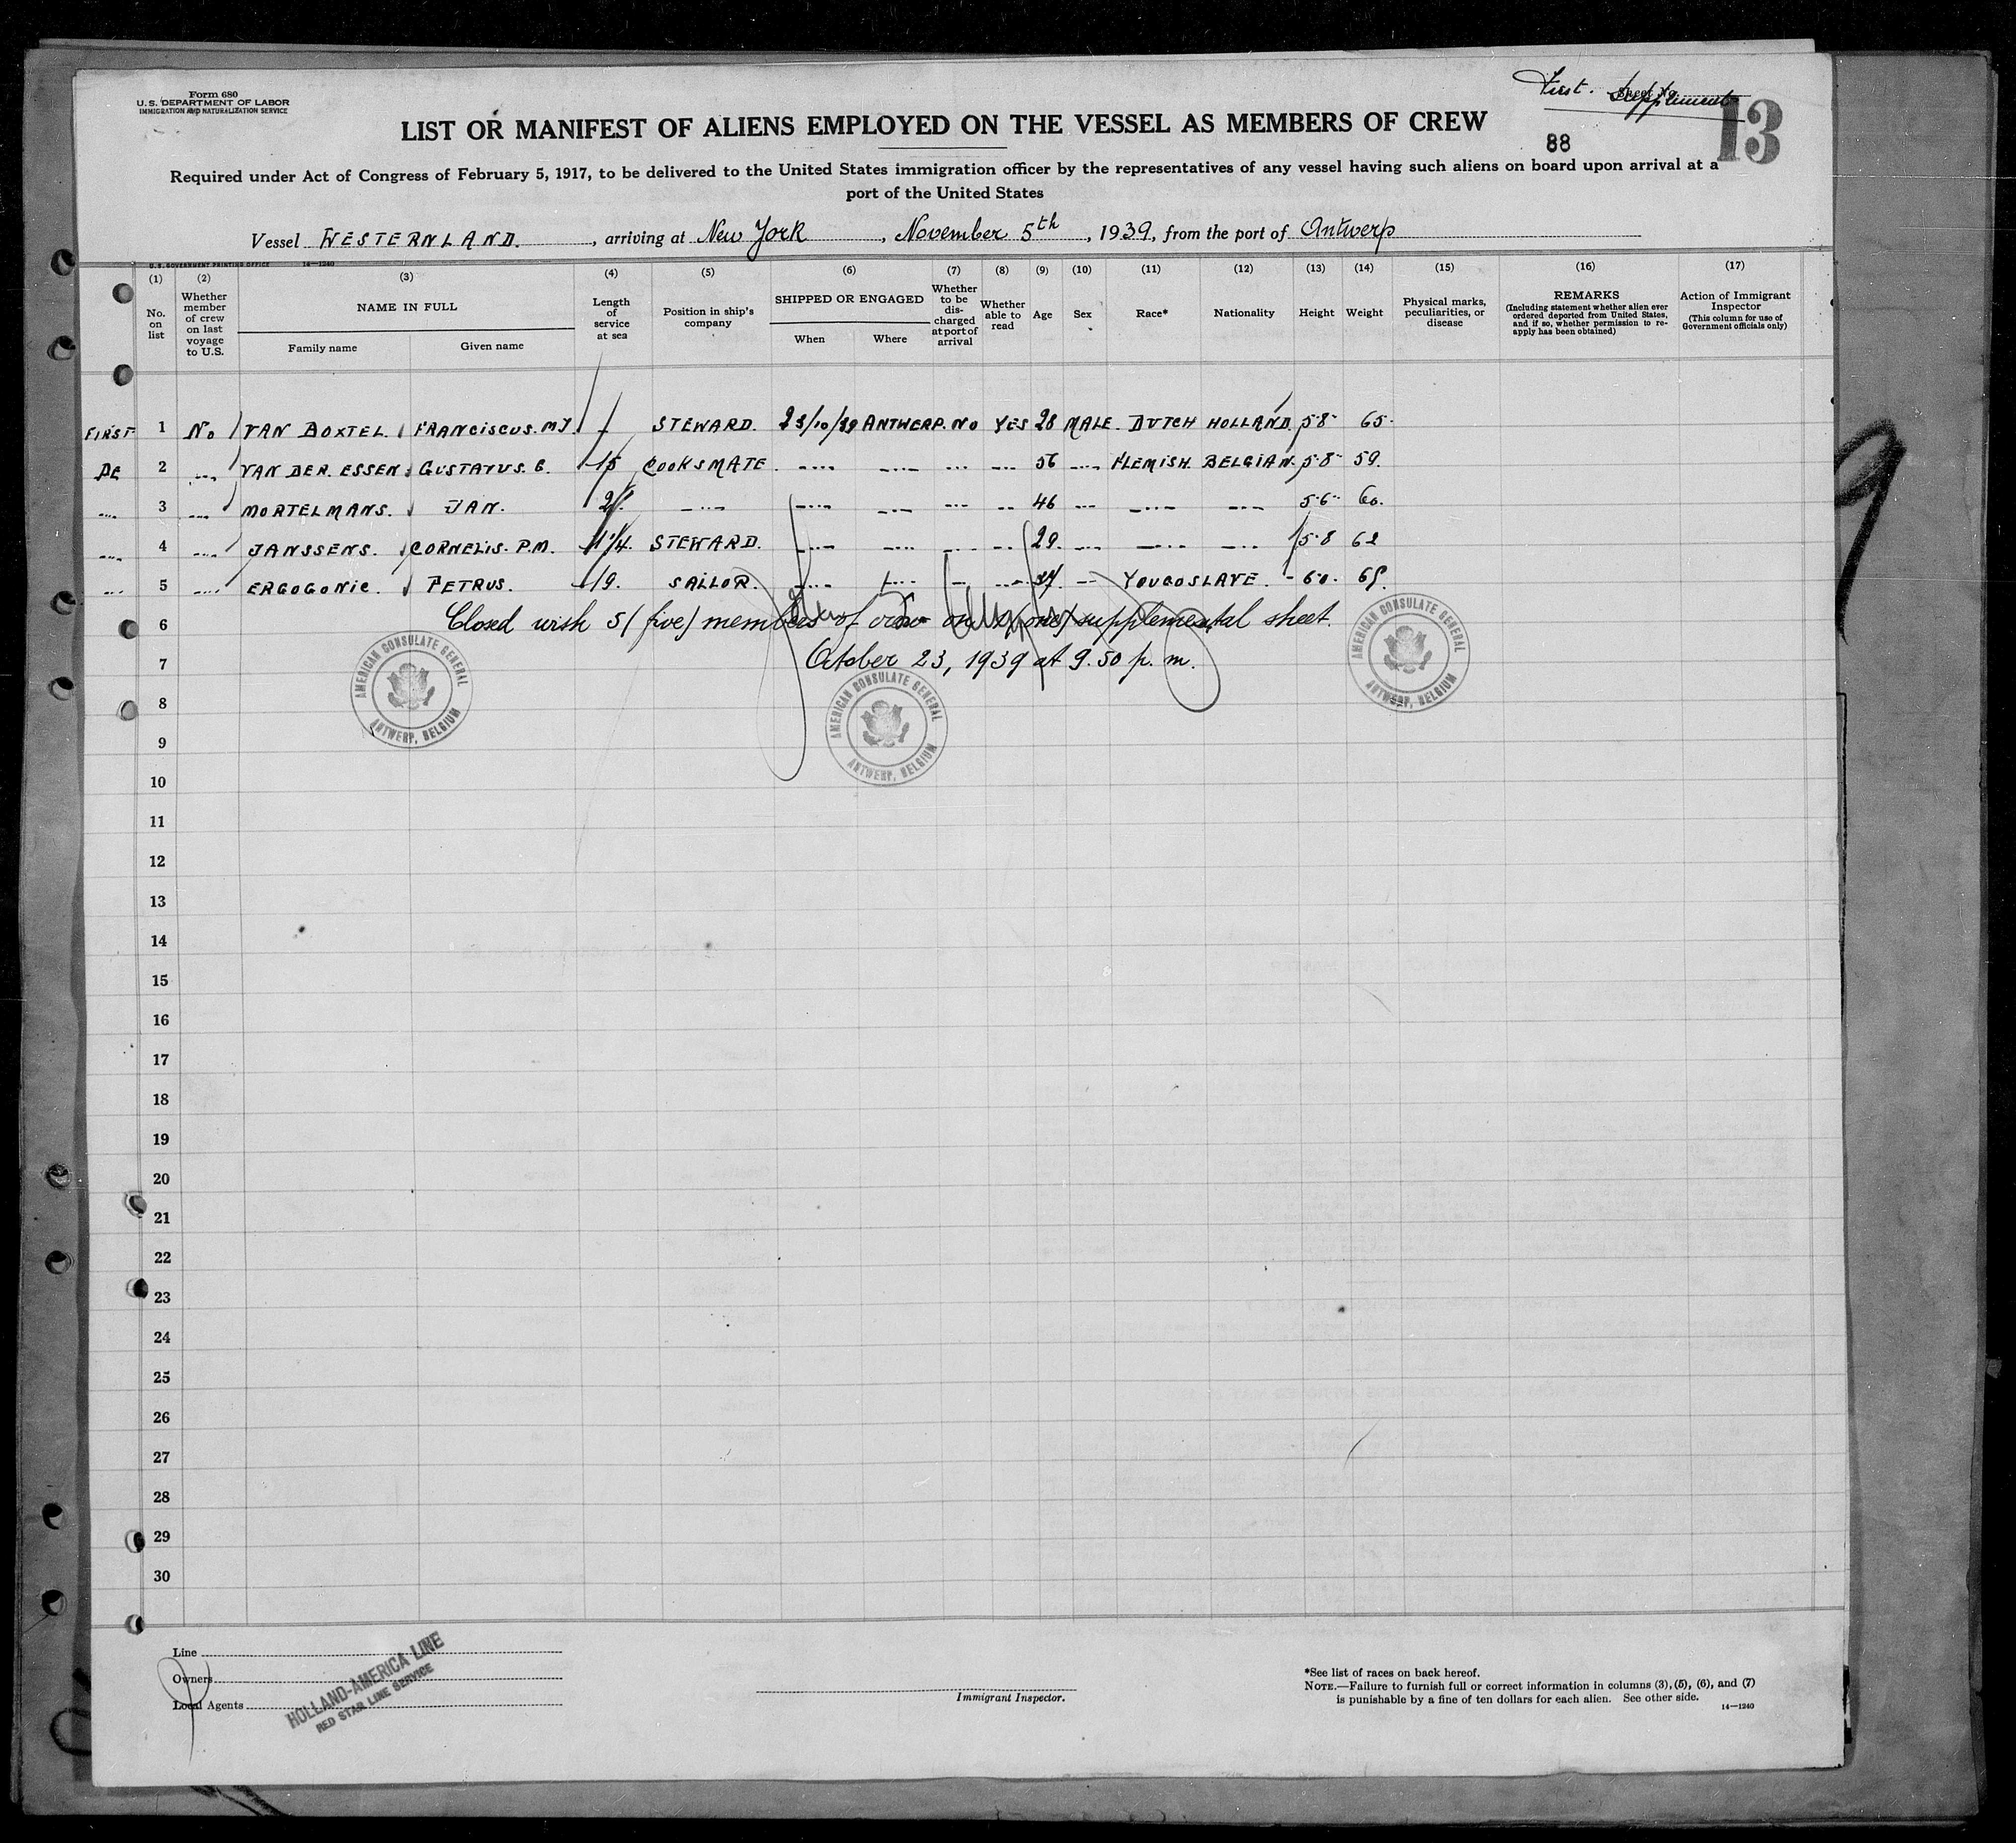 Form 680
U.S. DEPARTMENT OF LABOR
IMMIGRATION AND NATURALIZATION SERVICE
First. Supplement
13
88
LIST OR MANIFEST OF ALIENS EMPLOYED ON THE VESSEL AS MEMBERS OF CREW
Required under Act of Congress of February 5, 1917, to be delivered to the United States immigration officer by the representatives of any vessel having such aliens on board upon arrival at a
port of the United States
Vessel WESTERNLAND. , arriving at New York , November 5th , 1939, from the port of Antwerp
U.S. GOVERNMENT PRINTING OFFICE 14—1240
(1) (2) (3) (4) (5) (6) (7) (8) (9) (10) (11) (12) (13) (14) (15) (16) (17)
No. on list
Whether member of crew on last voyage to U.S.
NAME IN FULL
Family name
Given name
Length of service at sea
Position in ship's company
SHIPPED OR ENGAGED
When
Where
Whether to be discharged at port of arrival
Whether able to read
Age
Sex
Race*
Nationality
Height
Weight
Physical marks, peculiarities, or disease
REMARKS
(Including statement whether alien ever ordered deported from United States, and if so, whether permission to reapply has been obtained)
Action of Immigrant Inspector
(This column for use of Government officials only)
FIRST 1 No VAN BOXTEL. FRANCISCUS. M J. STEWARD. 23/10/39 ANTWERP. No YES 28 MALE. DUTCH HOLLAND. 5-8- 65-
DE 2 VAN DER. ESSEN. GUSTAVUS. 15 COOKSMATE 56 FLEMISH. BELGIAN. 5-8- 59.
3 MORTELMANS. JAN. 46 5-6- 60.
4 JANSSENS. CORNELIS. P.M. STEWARD. 29. 5-8 62
5 ERGOGONIC. PETRUS. 19. SAILOR. 37. YOUGOSLAVE. 6-0.
6 Closed with 5 (five) members of crew on 1 (one) supplemental sheet.
7 October 23, 1939 at 9.50 p. m.
AMERICAN CONSULATE GENERAL
ANTWERP, BELGIUM
AMERICAN CONSULATE GENERAL
ANTWERP, BELGIUM
AMERICAN CONSULATE GENERAL
ANTWERP, BELGIUM
8
9
10
11
12
13
14
15
16
17
18
19
20
21
22
23
24
25
26
27
28
29
30
Line
Owners
Local Agents
HOLLAND-AMERICA LINE
RED STAR LINE SERVICE
Immigrant Inspector.
*See list of races on back hereof.
NOTE.—Failure to furnish full or correct information in columns (3), (5), (6), and (7)
is punishable by a fine of ten dollars for each alien. See other side.
14—1240